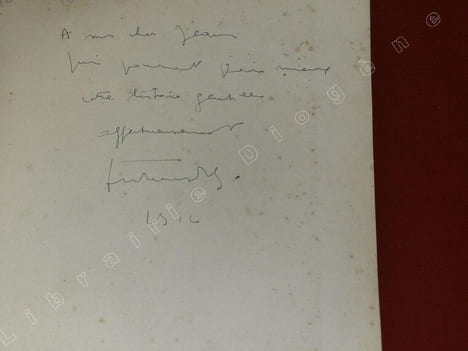 A mon cher Jean
qui pourrait faire mieux
cette histoire
affectueusement
1916
Librairie Diogène